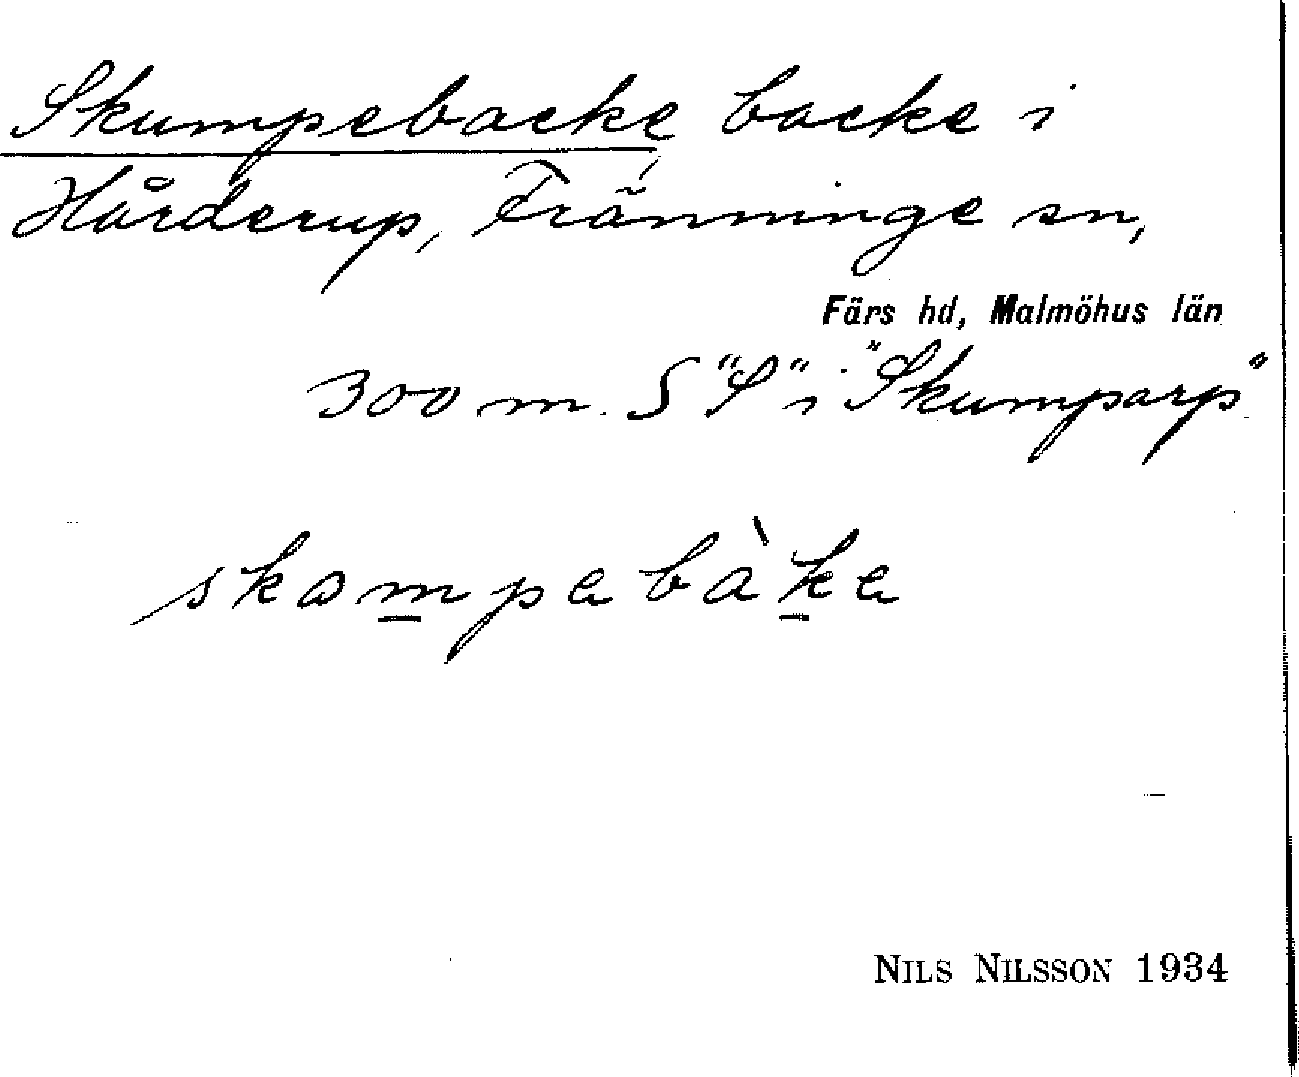 Skumpebacke, backe i
Hårderup, Tränninge sn,
Färs hd, Malmöhus län
300 m. S "S" i "Skumparp"
skompabàka
NILS NILSSON 1934